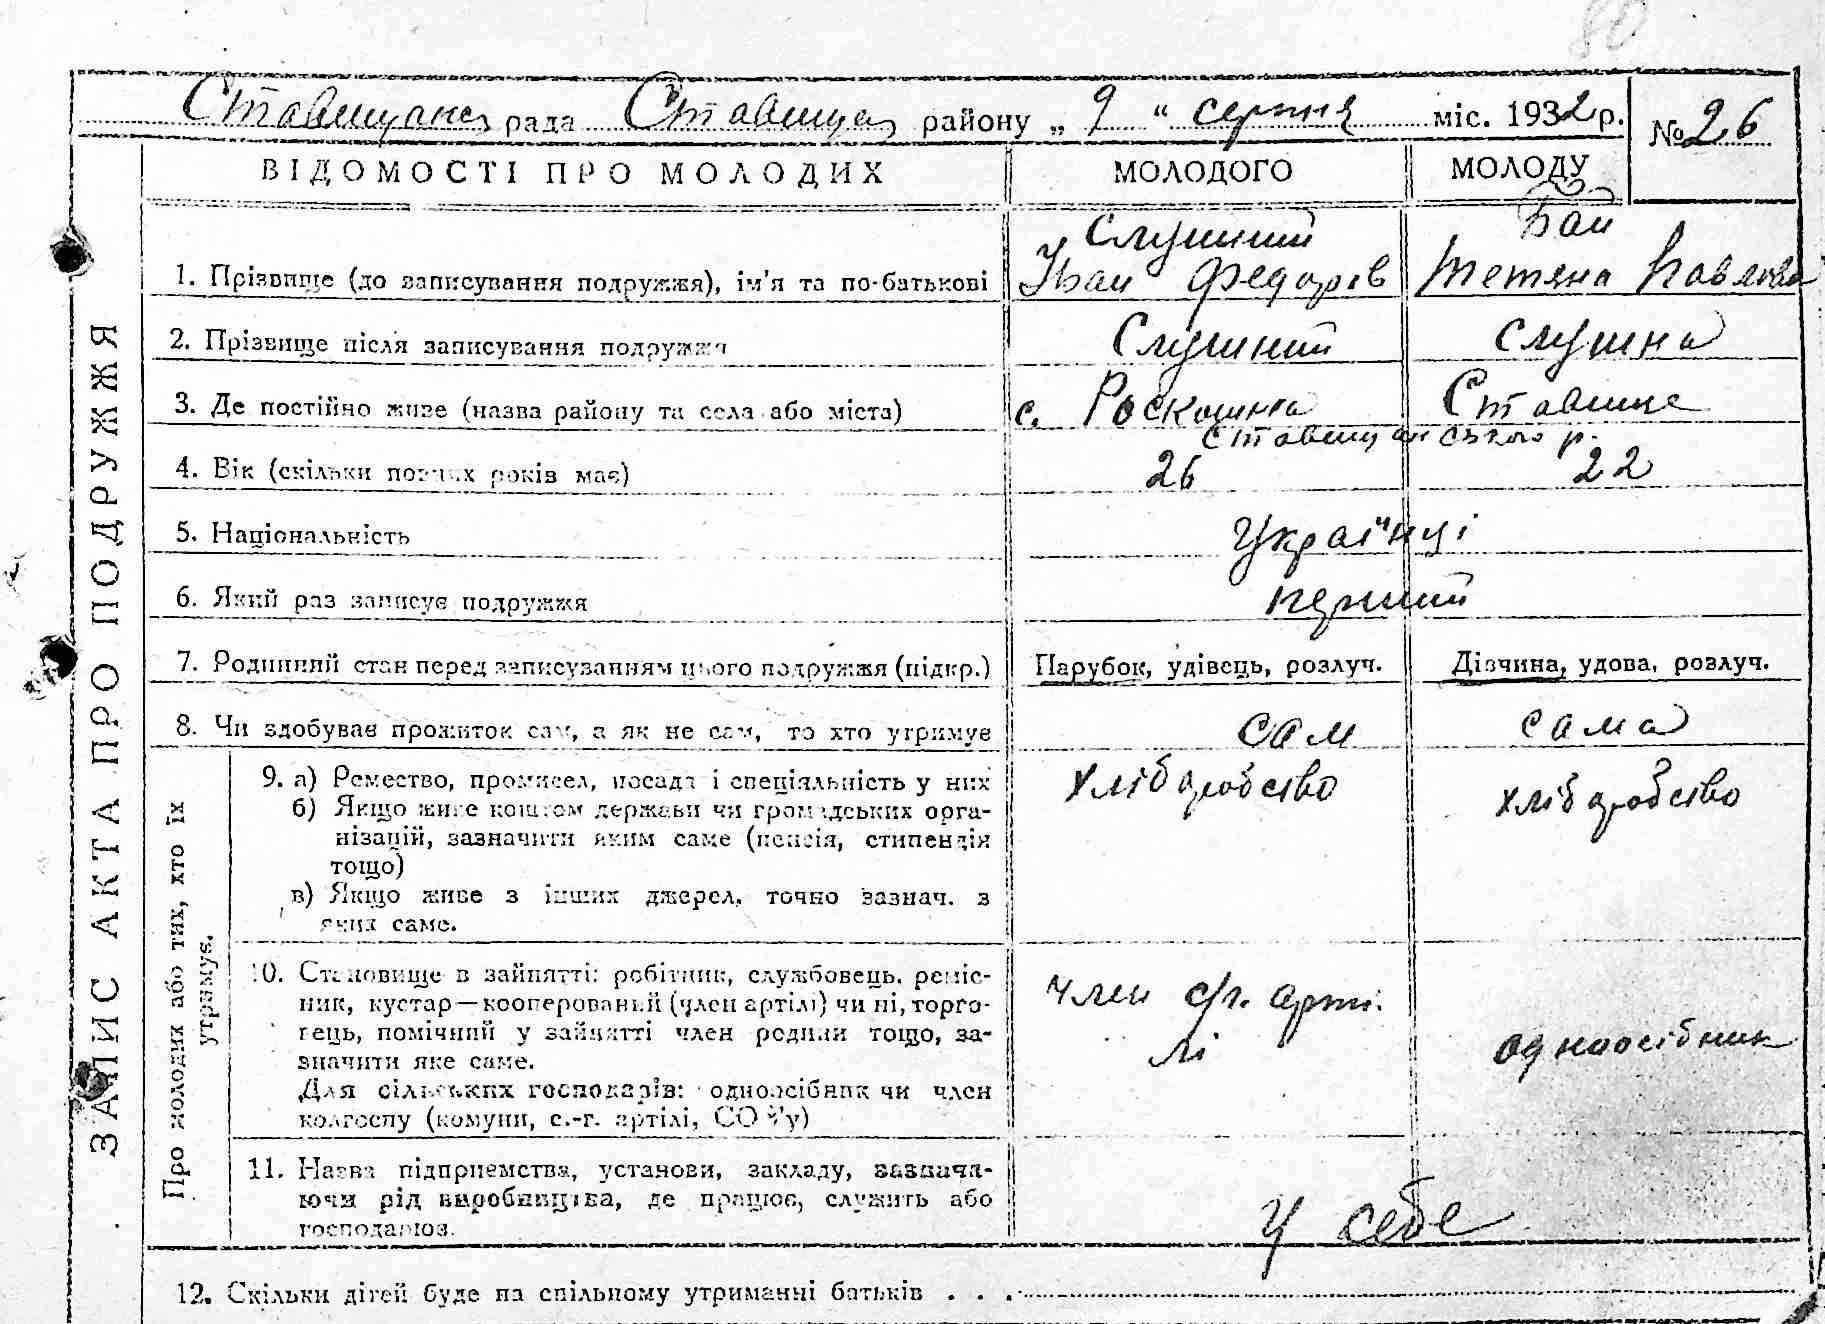 80
Ставищанс рада Ставищан району „ 9 “ серпня міс. 1932 р. № 26
ВІДОМОСТІ ПРО МОЛОДИХ МОЛОДОГО МОЛОДУ
ЗАПИС АКТА ПРО ПОДРУЖЖЯ
1. Прізвище (до записування подружжя), ім'я та по-батькові Слушний Бай
Іван Федорів Тетяна Павлова
2. Прізвище після записування подружжя Слушний Слушна
3. Де постійно живе (назва району та села або міста) с. Роскошна Ставище
Ставищанського р.
4. Вік (скільки повних років має) 26 22
5. Національність Українці
6. Який раз записує подружжя перший
7. Родинний стан перед записуванням цього подружжя (підкр.) Парубок, удівець, розлуч. Дівчина, удова, розлуч.
8. Чи здобуває прожиток сам, а як не сам, то хто утримує сам сама
Про молодих або тих, хто їх
утримує.
9. а) Ремество, промисел, посада і спеціяльність у них хлібаробство хлібаробство
б) Якщо живе коштом держави чи громадських орга-
нізацій, зазначити яким саме (пенсія, стипендія
тощо)
в) Якщо живе з інших джерел, точно зазнач. з
яких саме.
10. Становище в зайнятті: робітник, службовець, реміс-
ник, кустар—кооперований (член артілі) чи ні, торго-
вець, помічний у зайнятті член родини тощо, за-
значити яке саме.
Для сільських господарів: одноосібник чи член
колгоспу (комуни, с.-г. артілі, СОЗ'у)
член с/г. арті
лі
одноосібник
11. Назва підприємства, установи, закладу, зазнача-
ючи рід виробництва, де працює, служить або
господарює.
у себе
12. Скільки дітей буде на спільному утриманні батьків . . .